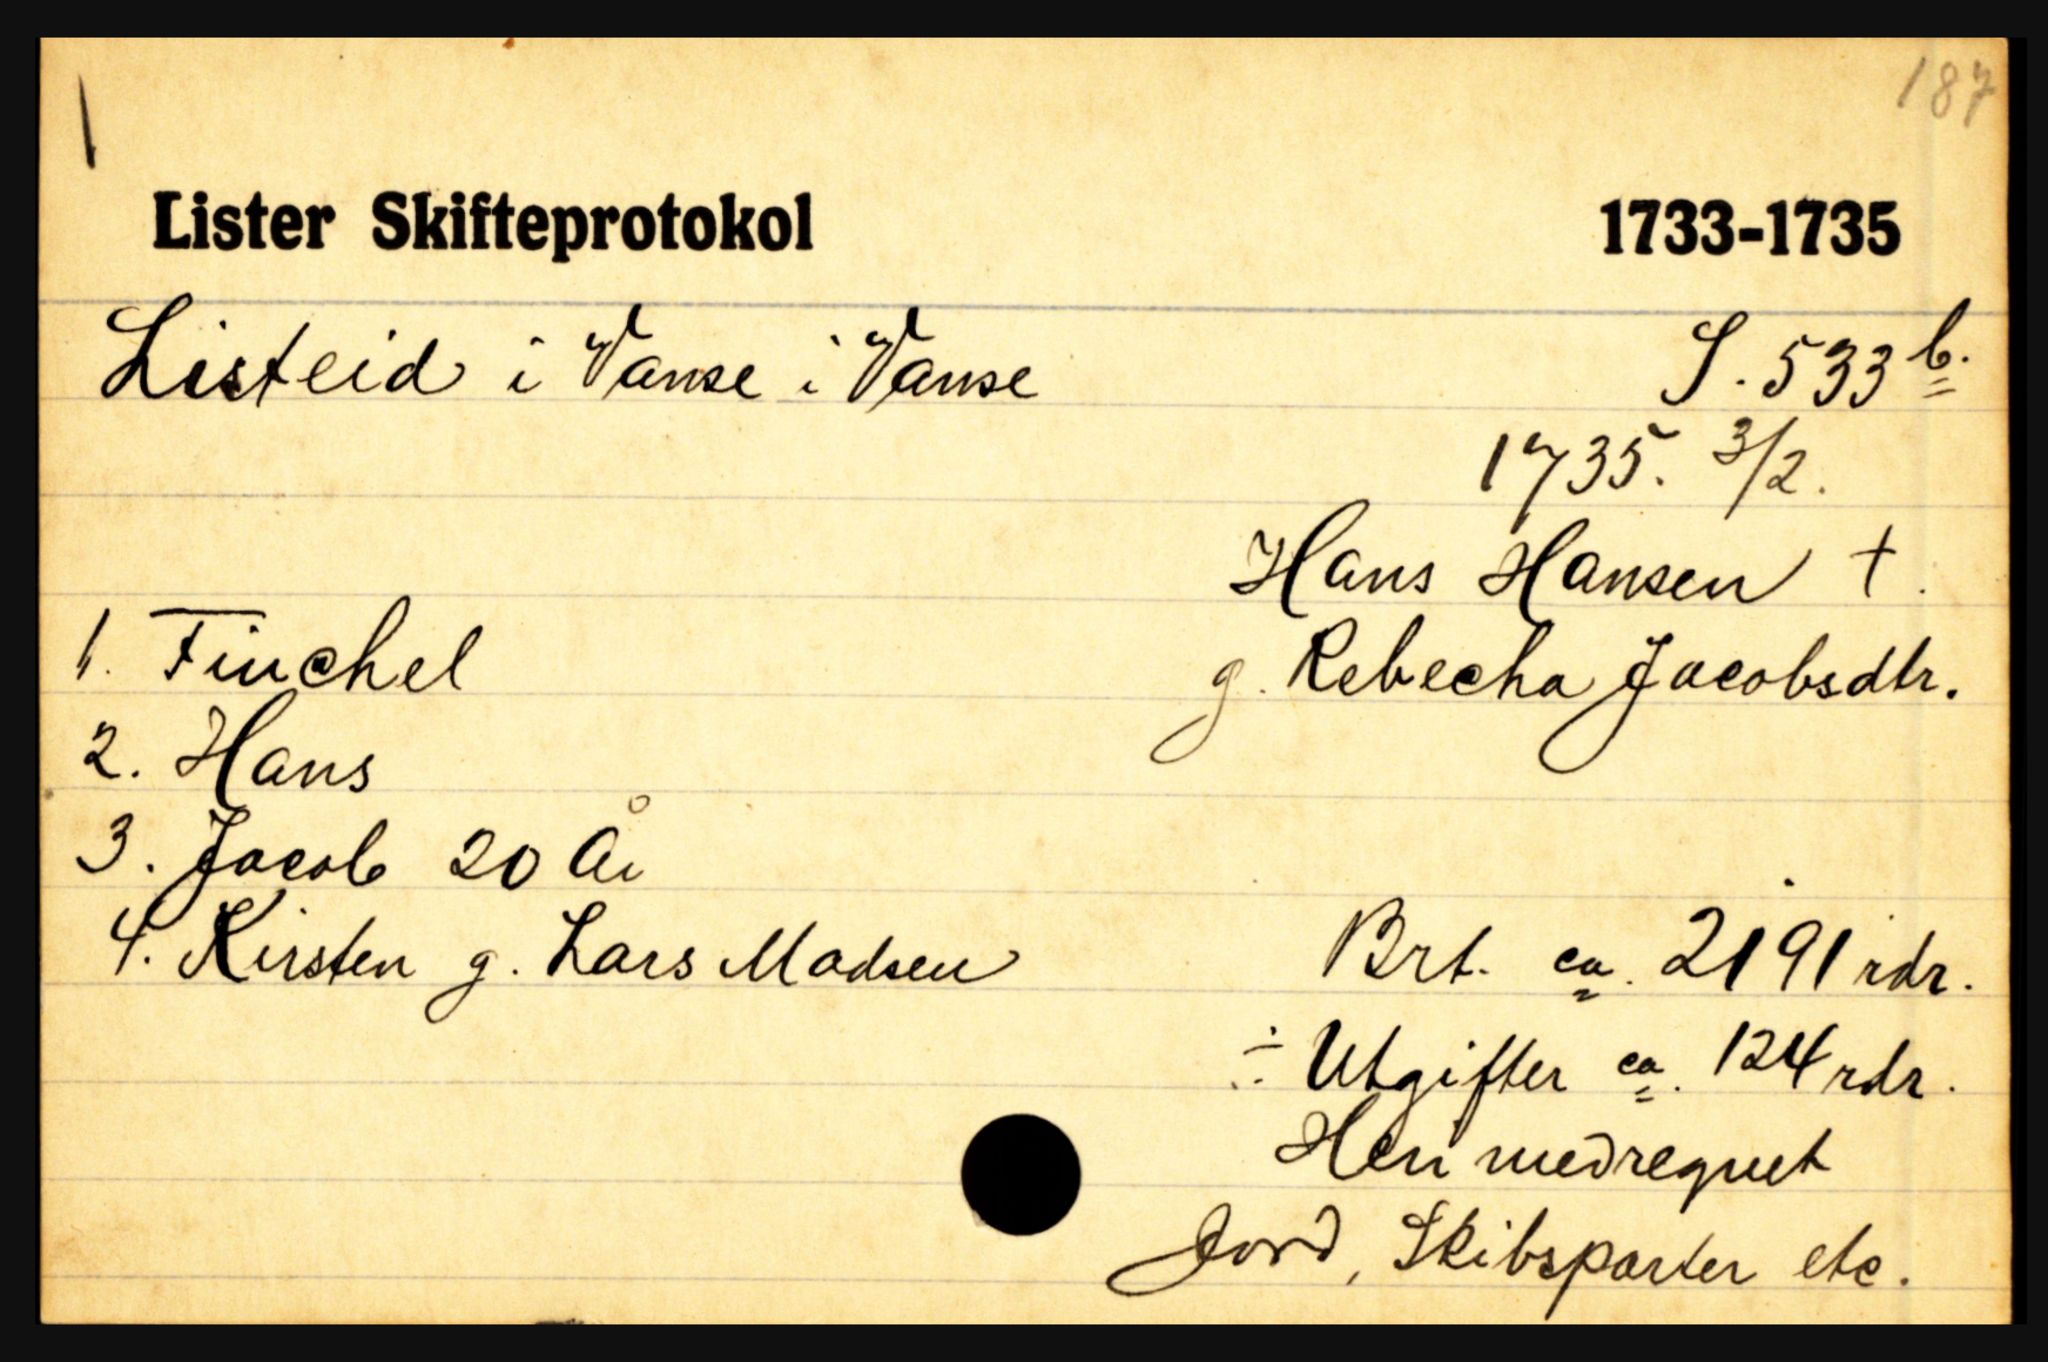 187
Lister Skifteprotokol 1733-1735
Listeid i Vanse i Vanse S. 533 b.
1735. 3/2.
Hans Hansen †.
1. Finchel g. Rebecha Jacobsdtr.
2. Hans
3. Jacob 20 År
4. Kirsten g. Lars Madsen Brt. ca. 2191 rdr.
÷ Utgifter ca. 124 rdr.
Heri medregnet
Jord, Skibsparter etc.